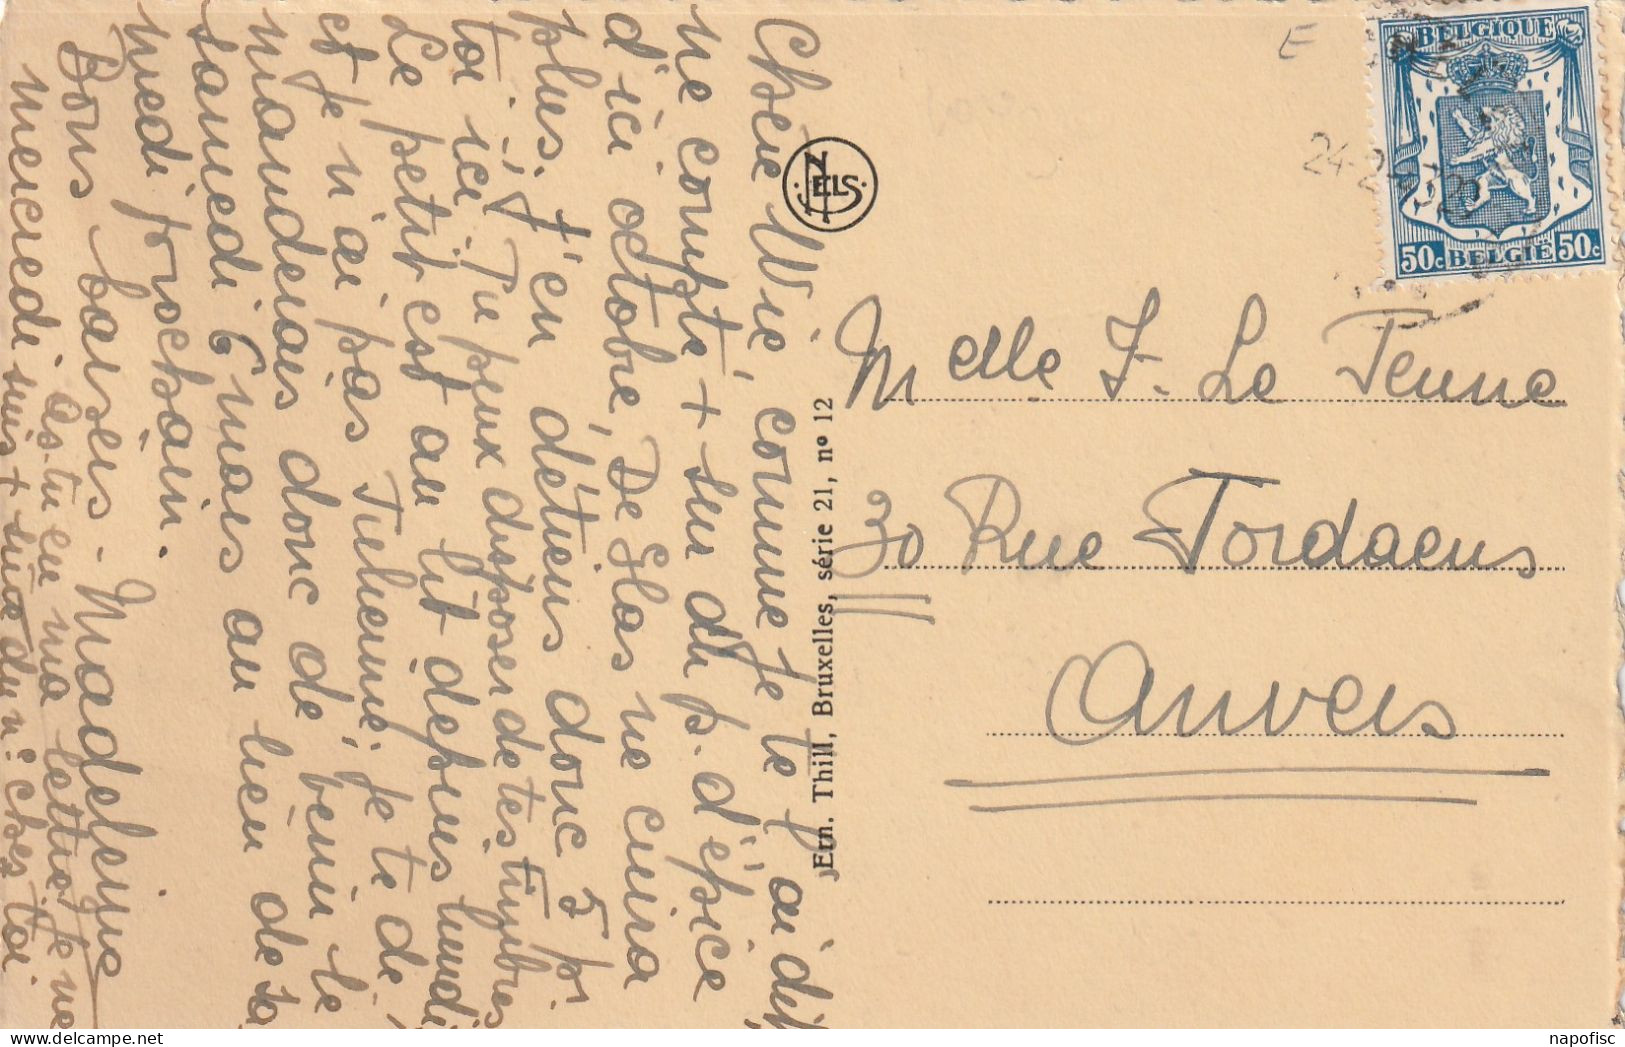 Chère Wié, comme je te l'ai dit
ne compte + sur du p. d'épice
d'ici octobre, De Slas ne cuira
plus. J'en détiens donc 5 p.
toi ici. Tu peux disposer de tes timbres
Le petit est au lit depuis lundi
et je n'ai pas Julienne, je te de,
manderais donc de venir le
samedi 6 mars au lieu de sa,
medi prochain.
Bons baisers. Madeleine
As-tu eu ma lettre? Je ne
mercredi suis + sûre du n° chez toi.
NELS
Ern. Thill, Bruxelles, série 21, n° 12
E
24-2-
BELGIQUE
50c BELGIË 50c
Melle J. Le Jeune
30 Rue Jordaens
Anvers
napofisc